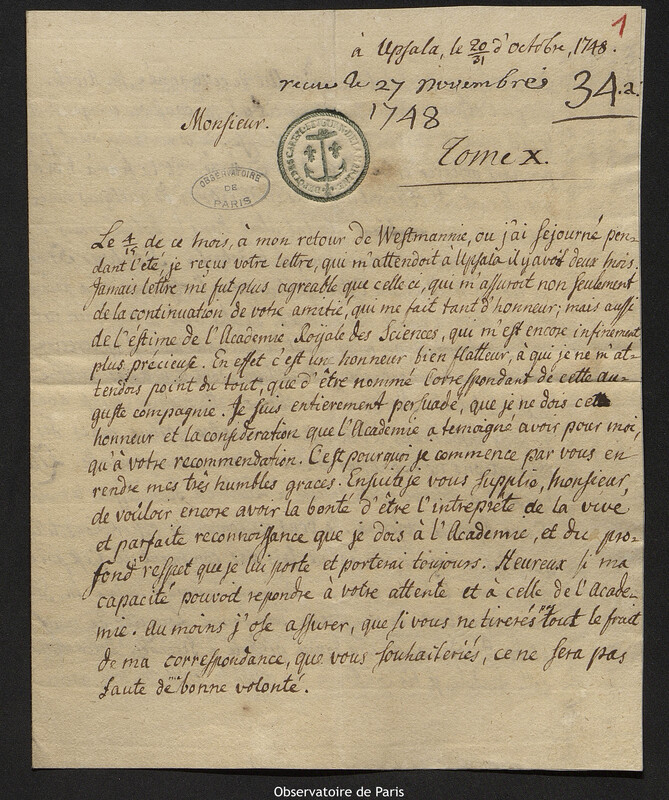 1
à Upsala, le 20/31 d'octobre, 1748.
recue le 27 novembre
1748
34.a.
Monsieur.
Tome X.
OBSERVATOIRE
DE
PARIS
Le 4/15 de ce mois, à mon retour de Westmannie, ou j'ai sejourné pen-
dant l'été, je reçus votre lettre, qui m'attendoit à Upsala il y avoit deux mois.
Jamais lettre me fut plus agreable que celle ci, qui m'assuroit non seulement
de la continuation de votre amitié, qui me fait tant d'honneur; mais aussi
de l'éstime de l'Academie Roijale des Sciences, qui m'est encore infiniment
plus précieuse. En effet c'est une honneur bien flatteur, à qui je ne m'at-
tendois point du tout, que d'être nommé Correspondant de cette au-
guste compagnie. Je suis entierement persuadé, que je ne dois cett
honneur et la consideration que l'Académie a temoigné avoir pour moi,
qu'à votre recommendation. C'est pourquoi je commence par vous en
rendre mes très humbles graces. Ensuite je vous supplie, Monsieur,
de vouloir encore avoir la bonté d'être l'intreprête de la vive
et parfaite reconnoissance que je dois à l'Academie, et du pro-
fond respet que je lui porte et porterai toujours. Heureux si ma
capacité pouvoit repondre à votre attente et à celle de l'Acade-
mie. Au moins j'ose assurer, que si vous ne tirerés pas tout le fruit
de ma correspondance, que vous souhaiteriés, ce ne sera pas
faute de bonne volonté.
Observatoire de Paris